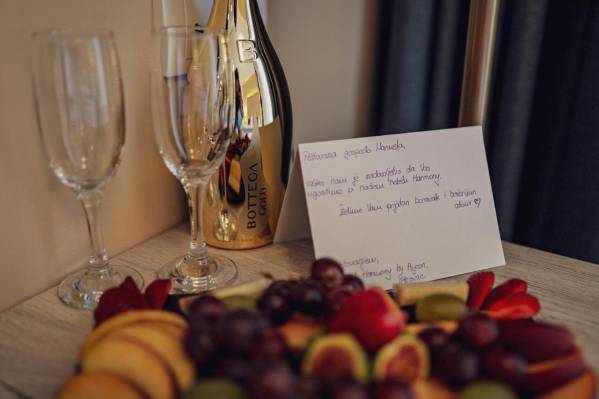 B
BOTTEGA
GOLD
Poštovana gospođo Manuela,
Veliko nam je zadovoljstvo da Vas
ugostimo u našem hotelu Harmony.
Želimo Vam prijatan boravak i
odmor ♡
Harmony by Aycon,